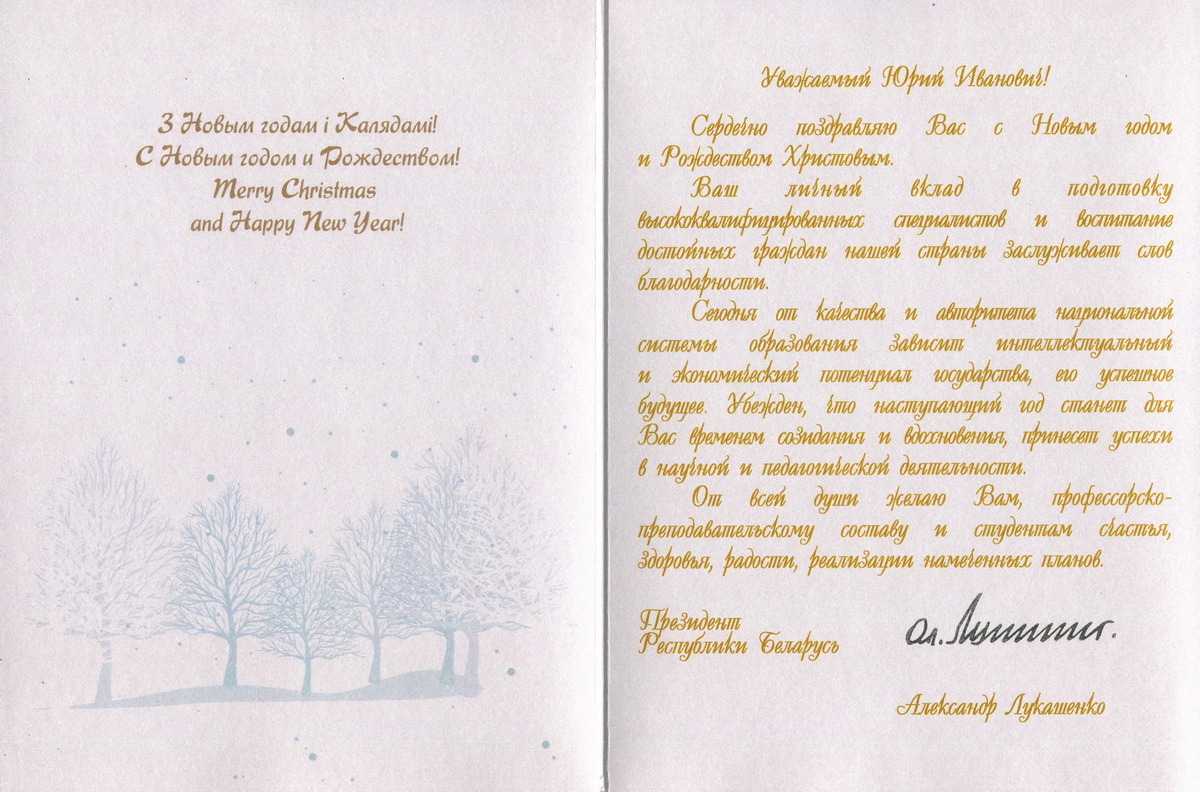 З Новым годам і Калядамі!
С Новым годом и Рождеством!
Merry Christmas
and Happy New Year!
Уважаемый Юрий Иванович!
Сердечно поздравляю Вас с Новым годом
и Рождеством Христовым.
Ваш личный вклад в подготовку
высококвалифицированных специалистов и воспитание
достойных граждан нашей страны заслуживает слов
благодарности.
Сегодня от качества и авторитета национальной
системы образования зависит интеллектуальный
и экономический потенциал государства, его успешное
будущее. Убежден, что наступающий год станет для
Вас временем созидания и вдохновения, принесет успехи
в научной и педагогической деятельности.
От всей души желаю Вам, профессорско-
преподавательскому составу и студентам счастья,
здоровья, радости, реализации намеченных планов.
Президент
Республики Беларусь
Александр Лукашенко